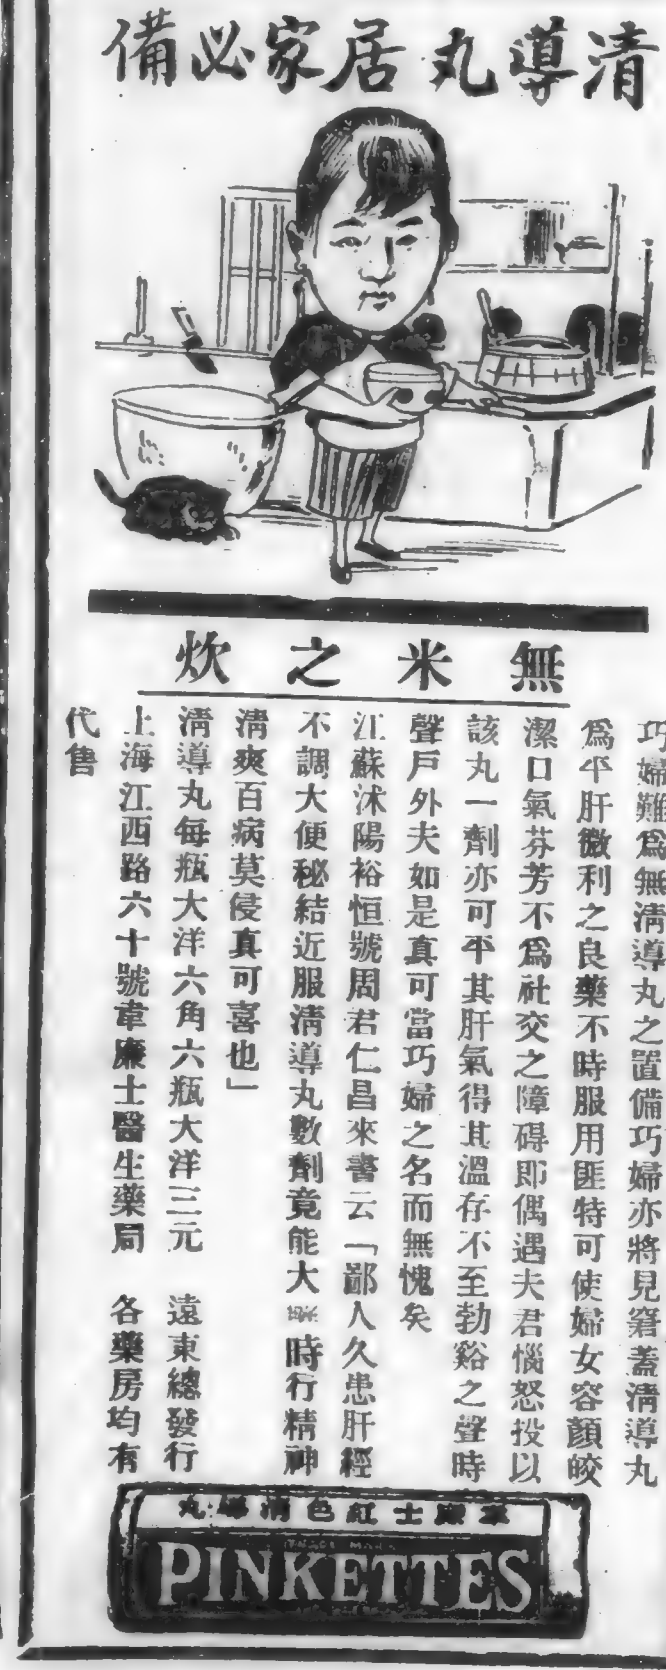 清導丸居家必備
無米之炊
巧婦難爲無清導丸之置備巧婦亦將見窘蓋清導丸
爲平肝微利之良藥不時服用匪特可使婦女容顏皎
潔口氣芬芳不爲社交之障碍即偶遇夫君惱怒投以
該丸一劑亦可平其肝氣得其溫存不至勃谿之聲時
聲戶外夫如是真可當巧婦之名而無愧矣
江蘇沭陽裕恒號周君仁昌來書云「鄙人久患肝經
不調大便秘結近服清導丸數劑竟能大時行精神
清爽百病莫侵真可喜也」
清導丸每瓶大洋六角六瓶大洋三元 遠東總發行
上海江西路六十號韋廉士醫生藥局 各藥房均有
代售
廉士紅色清導丸
TRADE MARK
PINKETTES